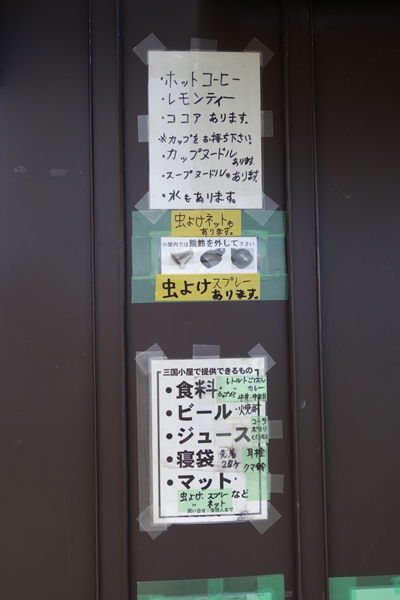 ・ホットコーヒー
・レモンティー
・ココア あります。
※カップをお持ち下さい!
・カップヌードル
あります。
・スープヌードルもあります。
・水もあります。
虫よけネットも
あります。
小屋内では熊鈴を外して下さい
虫よけスプレー
あります。
三国小屋で提供できるもの
・食料
レトルトごはん
カレー
・ビール・焼酎
・ジュース
コーラ
・寝袋 先着
耳栓
クマ鈴
・マット
虫よけ スプレー など
〃 ネット